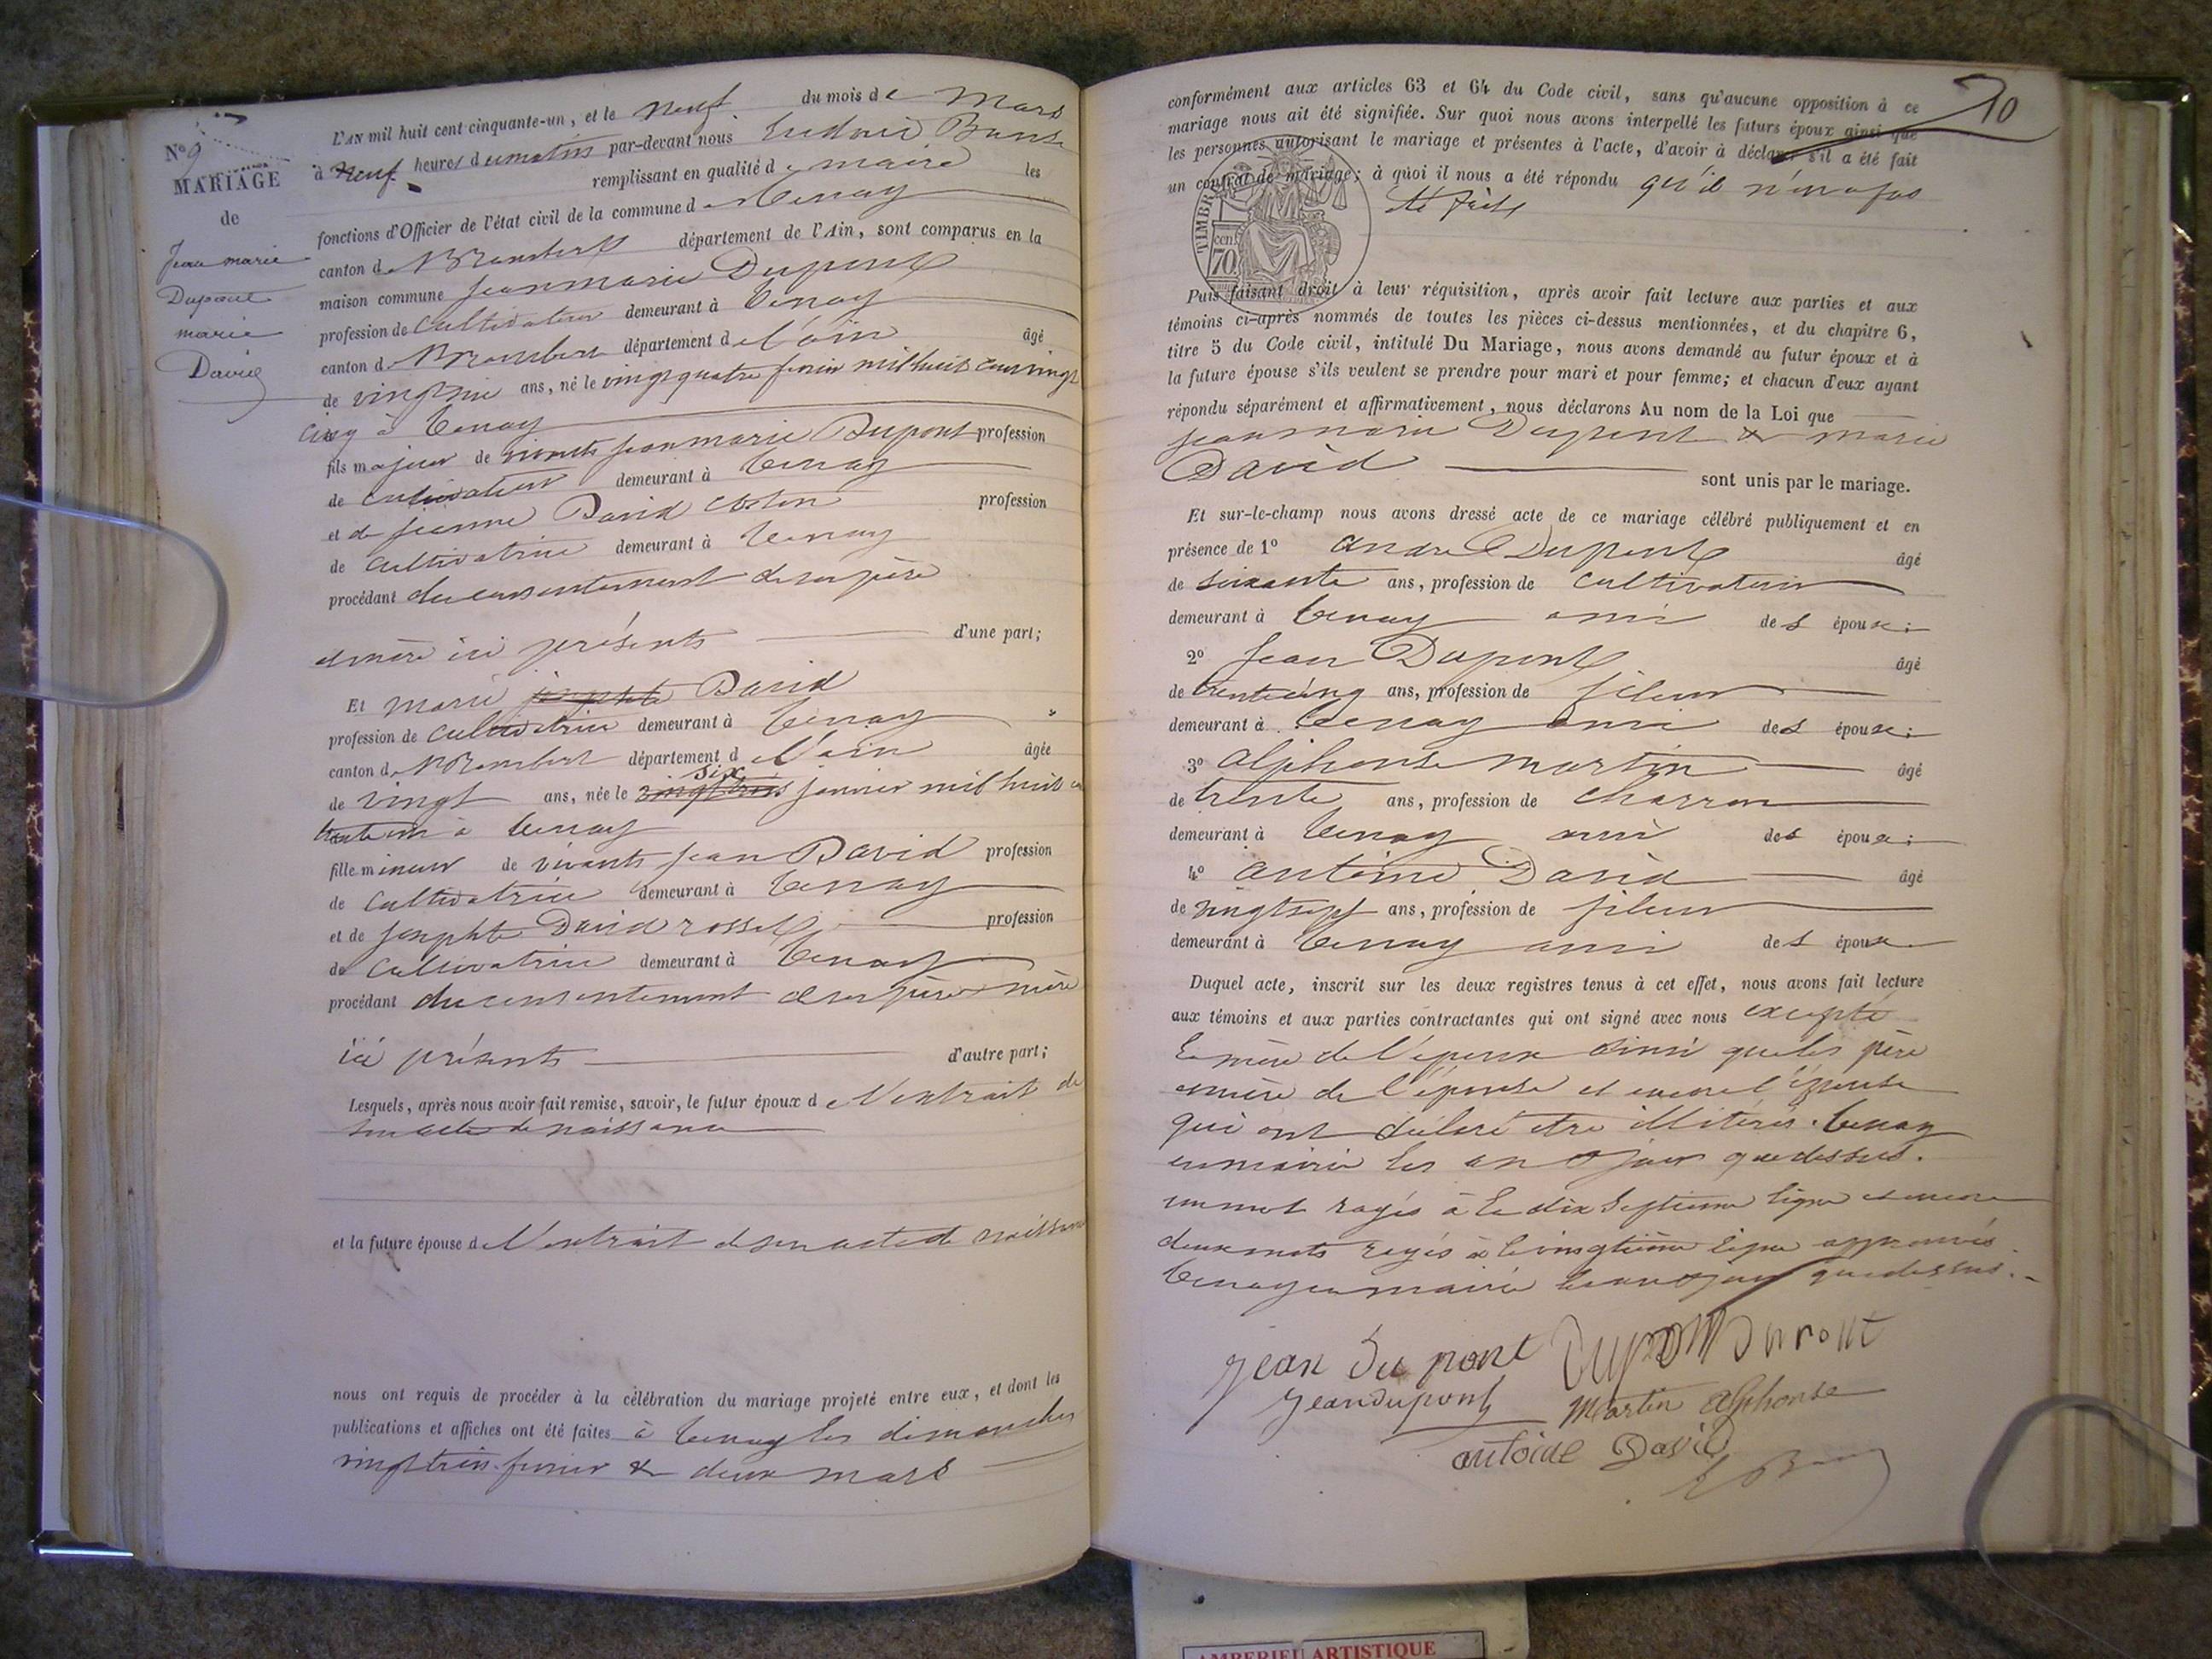 L'AN mil huit cent cinquante-un, et le neuf du mois de Mars
à neuf heures du matin par-devant nous
remplissant en qualité de maire les
fonctions d'Officier de l'état civil de la commune de Tenay
canton de St Rambert département de l'Ain, sont comparus en la
maison commune jean marie Dupont
profession de Cultivateur demeurant à Tenay
canton de St Rambert département de l'ain âgé
de vingt six ans, né le vingt quatre fevrier mil huit cent vingt
cinq à Tenay
fils majeur de vivants jean marie Dupont profession
de cultivateur demeurant à Tenay
et de jeanne David profession
de Cultivatrice demeurant à Tenay
procédant du consentement de ses père
et mère ici présents d'une part;
Et marie josephte David
profession de cultivatrice demeurant à Tenay
canton de St Rambert département de l'ain âgée
six
de vingt ans, née le vingt trois janvier mil huit cent
trente un à Tenay
fille mineur de vivants jean David profession
de Cultivatrice demeurant à Tenay
et de josephte David rosset profession
de Cultivatrice demeurant à Tenay
procédant du consentement de ses père & mère
ici présents d'autre part;
Lesquels, après nous avoir fait remise, savoir, le futur époux de l'extrait de
son acte de naissance
et la future épouse de l'extrait de son acte de naissance
nous ont requis de procéder à la célébration du mariage projeté entre eux, et dont les
publications et affiches ont été faites à Tenay les dimanches
vingt trois fevrier & deux mars
No 9
MARIAGE
de
Jean marie
Dupont
marie
David
20
conformément aux articles 63 et 64 du Code civil, sans qu'aucune opposition à ce
mariage nous ait été signifiée. Sur quoi nous avons interpellé les futurs époux ainsi que
les personnes autorisant le mariage et présentes à l'acte, d'avoir à déclarer s'il a été fait
un contrat de mariage; à quoi il nous a été répondu qu'il n'en a pas
été fait
TIMBRE
70 cent
Puis faisant droit à leur réquisition, après avoir fait lecture aux parties et aux
témoins ci-après nommés de toutes les pièces ci-dessus mentionnées, et du chapitre 6,
titre 5 du Code civil, intitulé Du Mariage, nous avons demandé au futur époux et à
la future épouse s'ils veulent se prendre pour mari et pour femme; et chacun d'eux ayant
répondu séparément et affirmativement, nous déclarons Au nom de la Loi que
jean marie Dupont & marie
David sont unis par le mariage.
Et sur-le-champ nous avons dressé acte de ce mariage célébré publiquement et en
présence de 1º andre Dupont âgé
de soixante ans, profession de cultivateur
demeurant à Tenay ami des époux;
2º jean Dupont âgé
de trente cinq ans, profession de fileur
demeurant à Tenay ami des époux;
3º alphonse martin âgé
de trente ans, profession de charron
demeurant à Tenay ami des époux;
4º antoine David âgé
de vingt sept ans, profession de fileur
demeurant à Tenay ami des époux
Duquel acte, inscrit sur les deux registres tenus à cet effet, nous avons fait lecture
aux témoins et aux parties contractantes qui ont signé avec nous excepté
la mère de l'epoux ainsi que les père
et mère de l'épouse et encore l'épouse
qui ont déclaré etre illitérés. Tenay
en mairie les an & jour que dessus.
un mot rayés à la dix septieme ligne et encore
deux mots rayés à la vingtième ligne approuvés
Tenay en mairie les an & jour que dessus.
jean du pont Dupont Dupont
jean dupont martin alphonse
antoine David
AMBERIEU ARTISTIQUE